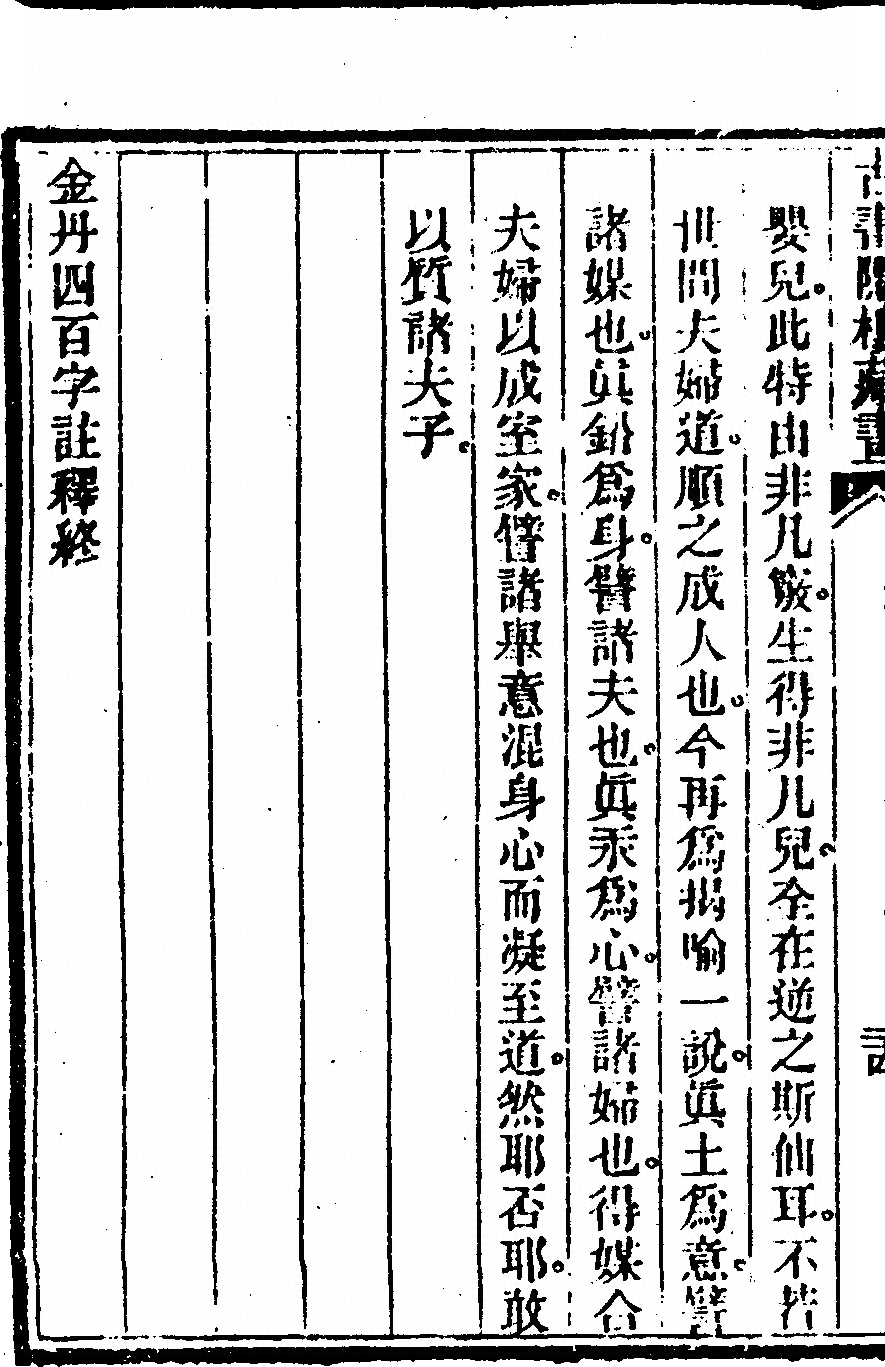 古書隱樓藏書
嬰兒。此特由非凡竅。生得非凡兒。全在逆之斯仙耳。不若
世間夫婦道。順之成人也。今再爲揭喻一說。眞土爲意。譬
諸媒也。眞鉛爲身。譬諸夫也。眞汞爲心。譬諸婦也。得媒合
夫婦以成室家。譬諸舉意混身心而凝至道。然耶否耶。敢
以質諸夫子。
金丹四百字註釋終